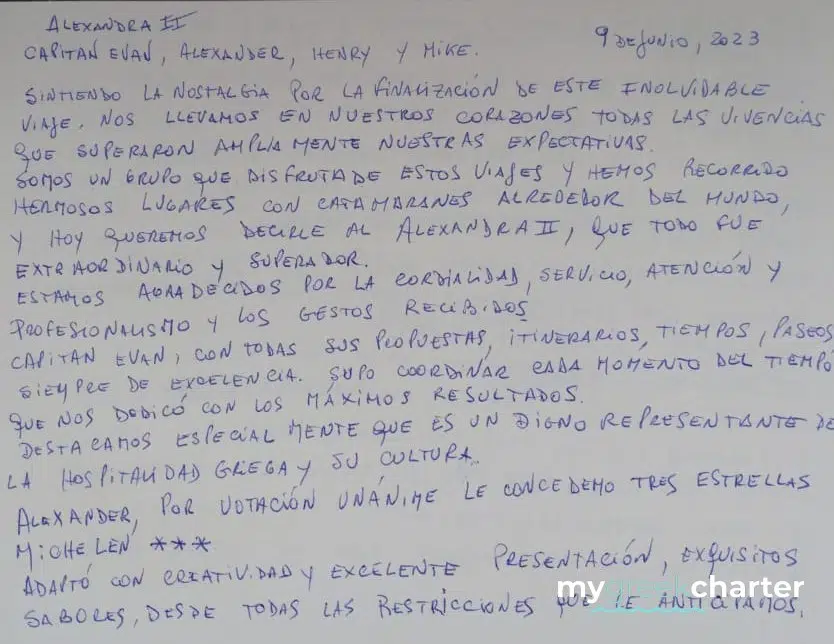 ALEXANDRA II
9 DE JUNIO, 2023
CAPITÁN EVAN, ALEXANDER, HENRY Y MIKE.
SINTIENDO LA NOSTALGIA POR LA FINALIZACIÓN DE ESTE INOLVIDABLE
VIAJE, NOS LLEVAMOS EN NUESTROS CORAZONES TODAS LAS VIVENCIAS
QUE SUPERARON AMPLIAMENTE NUESTRAS EXPECTATIVAS.
SOMOS UN GRUPO QUE DISFRUTA DE ESTOS VIAJES Y HEMOS RECORRIDO
HERMOSOS LUGARES CON CATAMARANES ALREDEDOR DEL MUNDO,
Y HOY QUEREMOS DECIRLE AL ALEXANDRA II, QUE TODO FUE
EXTRAORDINARIO Y SUPERADOR.
ESTAMOS AGRADECIDOS POR LA CORDIALIDAD, SERVICIO, ATENCIÓN Y
PROFESIONALISMO Y LOS GESTOS RECIBIDOS
CAPITÁN EVAN, CON TODAS SUS PROPUESTAS, ITINERARIOS, TIEMPOS, PASEOS
SIEMPRE DE EXCELENCIA. SUPO COORDINAR CADA MOMENTO DEL TIEMPO
QUE NOS DEDICÓ CON LOS MÁXIMOS RESULTADOS.
DESTACAMOS ESPECIALMENTE QUE ES UN DIGNO REPRESENTANTE DE
LA HOSPITALIDAD GRIEGA Y SU CULTURA.
ALEXANDER, POR VOTACIÓN UNÁNIME LE CONCEDEMO TRES ESTRELLAS
MICHELEN ***
ADAPTÓ CON CREATIVIDAD Y EXCELENTE PRESENTACIÓN, EXQUISITOS
SABORES, DESDE TODAS LAS RESTRICCIONES QUE LE ANTICIPAMOS.
mygreekcharter